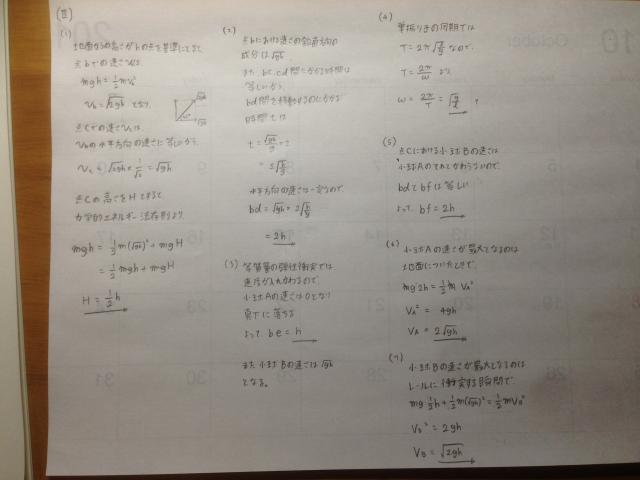 [Ⅱ]
(1)
地面からの高さがhの点を基準にとると
点bでの速さv₆は
mgh = 1/2 mv₆²
v₆ = √2gh となり
45°
点Cでの速さVcは
V₆の水平方向の速さに等しいから
Vc = √2gh × 1/√2 = √gh
点Cの高さをHとすると
力学的エネルギー保存則より
mgh = 1/2 m(√gh)² + mgH
= 1/2 mgh + mgH
H = 1/2 h
(2)
点bにおける速さの鉛直方向の
成分は√gh
また bc, cd間にかかる時間は
等しいから
bd間を移動するのにかかる
時間tは
t = √gh/g × 2
= 2√h/g
水平方向の速さは一定なので
bd = √gh × 2√h/g
= 2h
(3) 等質量の弾性衝突では
速度が入れかわるので
小球Aの速さは0となり
真下に落ちる
よって be = h
また 小球Bの速さは √gh
となる。
(4) 単振りまの周期Tは
T = 2π√l/g なので
T = 2π/ω より
ω = 2π/T = √g/l
(5)
点Cにおける小球Bの速さは
小球Aのそれとかわらないので
bdとbfは等しい
よって bf = 2h
(6) 小球Aの速さが最大となるのは
地面についたときで
mg2h = 1/2 m VA²
VA² = 4gh
VA = 2√gh
(7) 小球Bの速さが最大となるのは
レールに衝突する瞬間で
mg 1/2 h + 1/2 m(√gh)² = 1/2 mVB²
VB² = 2gh
VB = √2gh
October